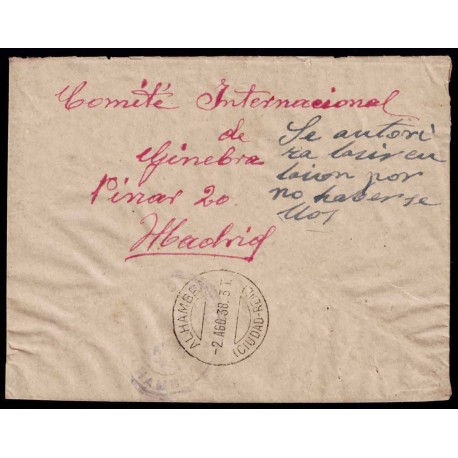 Comité Internacional
de
Ginebra
Pinar 20
Madrid
Se autori
za la circu
lacion por
no haber se
llos
ALHAMBRA
-2.AGO.38.
(CIUDAD-REAL)